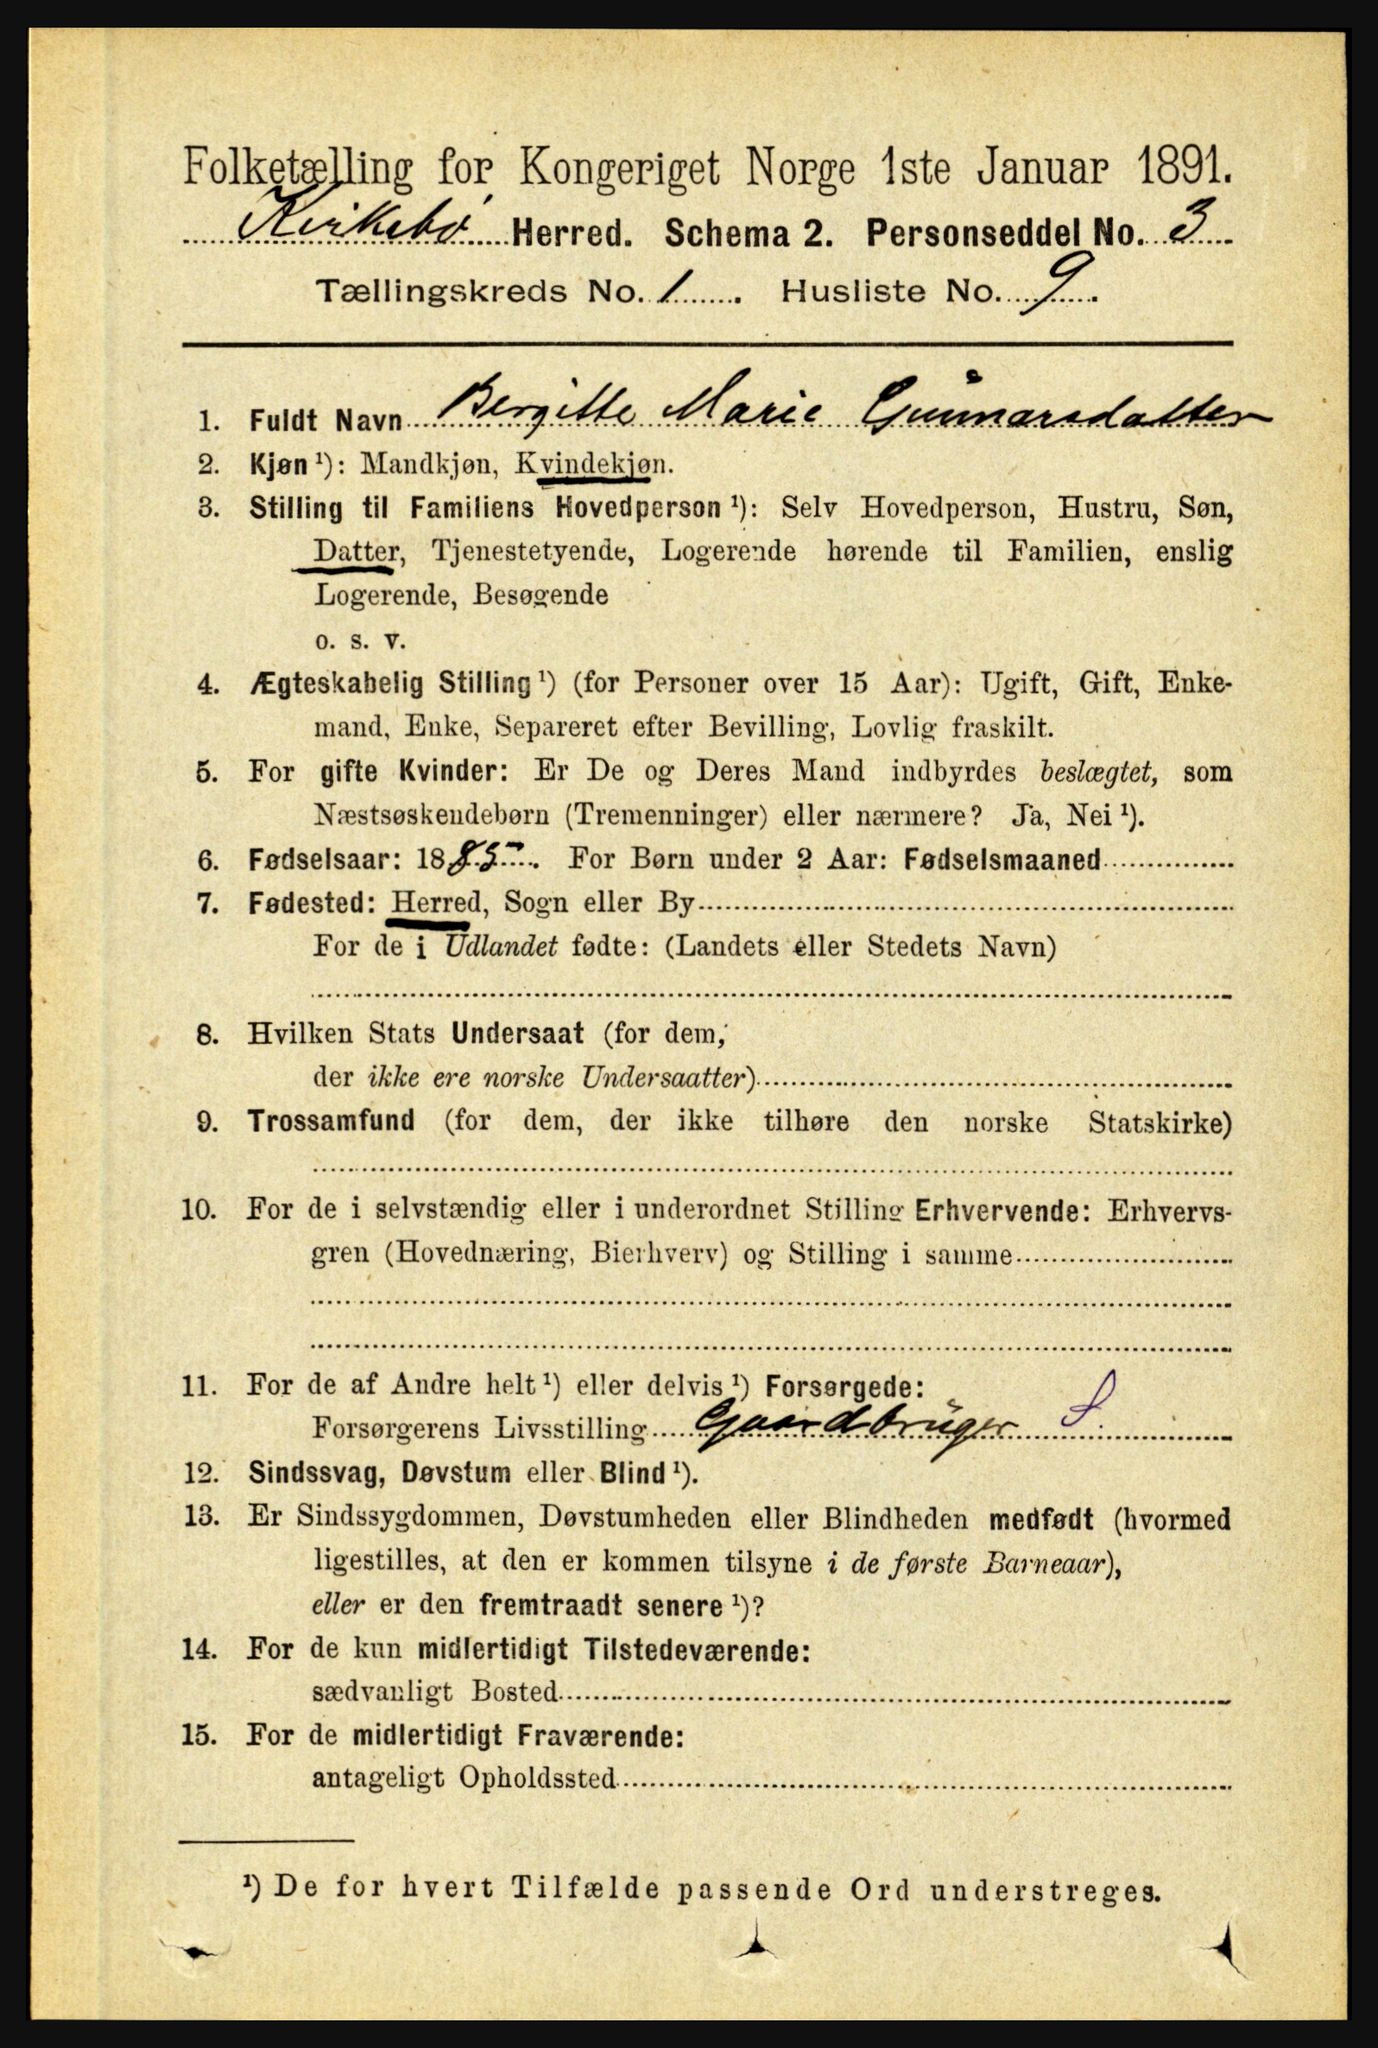 Folketælling for Kongeriget Norge 1ste Januar 1891.
Kirkebø Herred. Schema 2. Personseddel No. 3
Tællingskreds No. 1. Husliste No. 9.
1. Fuldt Navn Bergitte Marie Gunnarsdatter
2. Kjøn ¹): Mandkjøn, Kvindekjøn.
3. Stilling til Familiens Hovedperson ¹): Selv Hovedperson, Hustru, Søn,
Datter, Tjenestetyende, Logerende hørende til Familien, enslig
Logerende, Besøgende
o. s. v.
4. Ægteskabelig Stilling ¹) (for Personer over 15 Aar): Ugift, Gift, Enke-
mand, Enke, Separeret efter Bevilling, Lovlig fraskilt.
5. For gifte Kvinder: Er De og Deres Mand indbyrdes beslægtet, som
Næstsøskendebørn (Tremenninger) eller nærmere? Ja, Nei ¹).
6. Fødselsaar: 1885. For Børn under 2 Aar: Fødselsmaaned
7. Fødested: Herred, Sogn eller By
For de i Udlandet fødte: (Landets eller Stedets Navn)
8. Hvilken Stats Undersaat (for dem,
der ikke ere norske Undersaatter)
9. Trossamfund (for dem, der ikke tilhøre den norske Statskirke)
10. For de i selvstændig eller i underordnet Stilling Erhvervende: Erhvervs-
gren (Hovednæring, Bierhverv) og Stilling i samme
11. For de af Andre helt ¹) eller delvis ¹) Forsørgede:
Forsørgerens Livsstilling Gaardbruger S.
12. Sindssvag, Døvstum eller Blind ¹).
13. Er Sindssygdommen, Døvstumheden eller Blindheden medfødt (hvormed
ligestilles, at den er kommen tilsyne i de første Barneaar),
eller er den fremtraadt senere ¹)?
14. For de kun midlertidigt Tilstedeværende:
sædvanligt Bosted
15. For de midlertidigt Fraværende:
antageligt Opholdssted
¹) De for hvert Tilfælde passende Ord understreges.